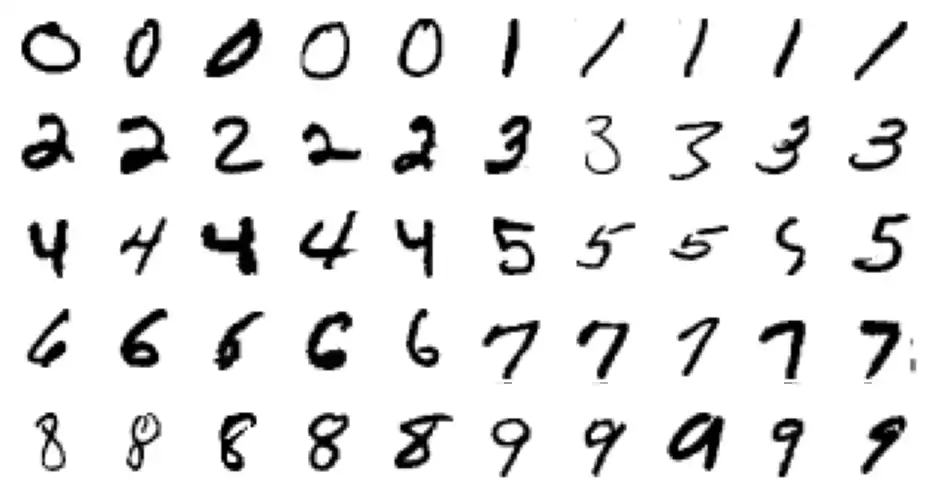 0 0 0 0 0 1 1 1 1 1
2 2 2 2 2 3 3 3 3 3
4 4 4 4 4 5 5 5 5 5
6 6 6 6 6 7 7 7 7 7
8 8 8 8 8 9 9 9 9 9